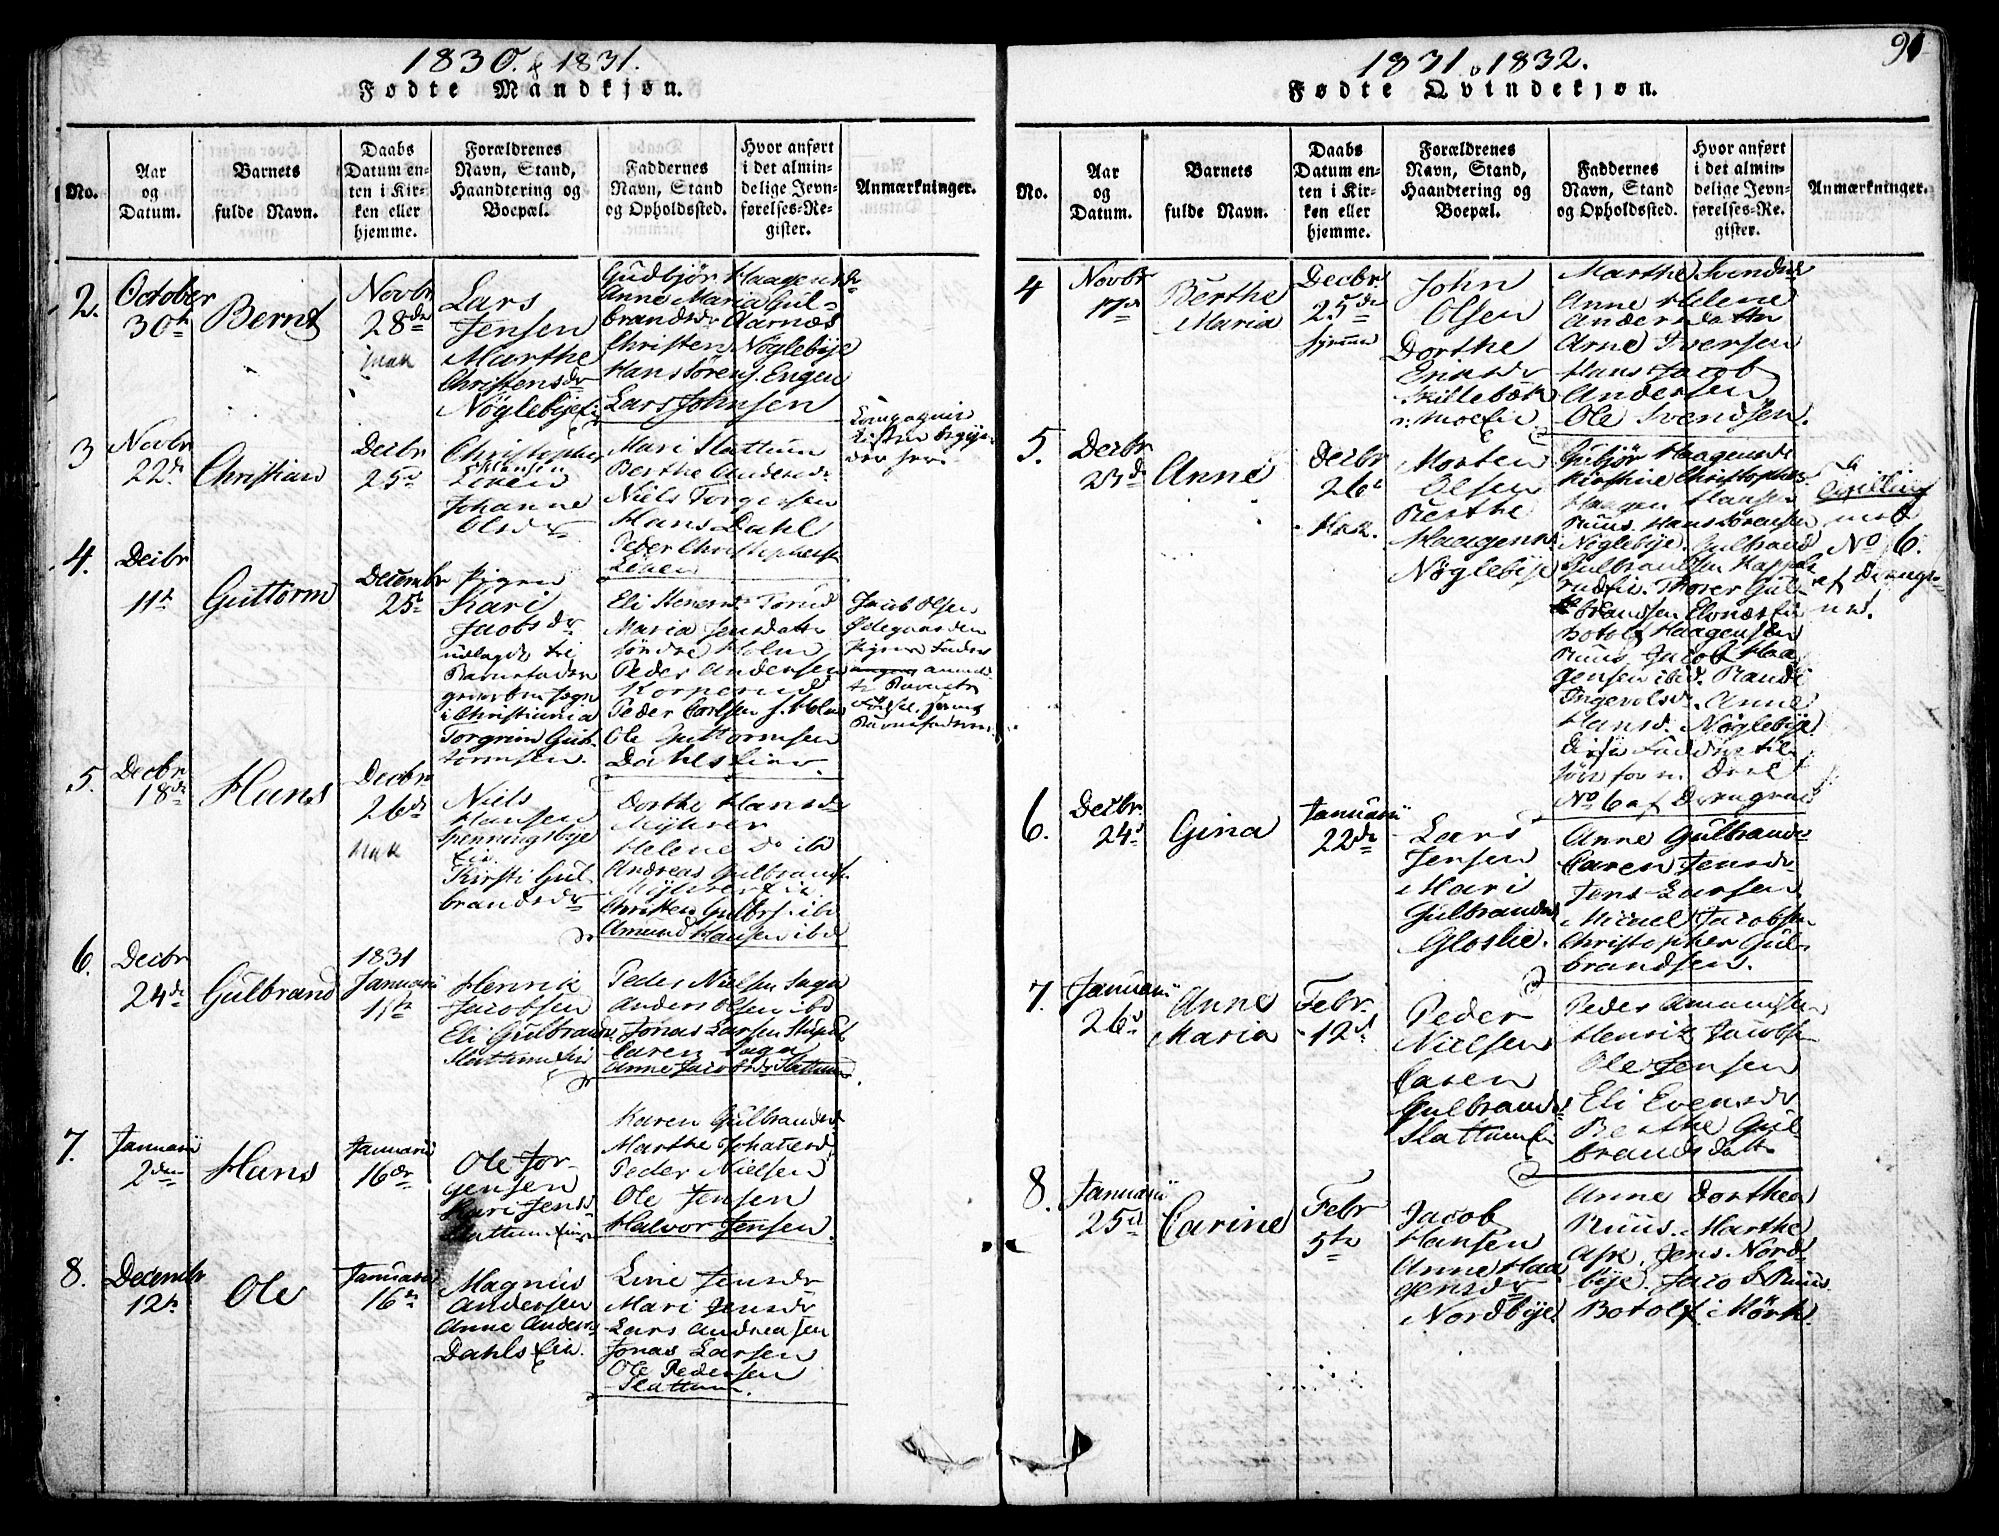 1830. & 1831.
Fødte Mandkjøn.
No.
Aar og Datum.
Barnets fulde Navn.
Daabs Datum enten i Kirken eller hjemme.
Forældrenes Navn, Stand, Haandtering og Boepæl.
Faddernes Navn, Stand og Opholdssted.
Hvor anført i det almindelige Jevnførelses-Register.
Anmærkninger.
2.
October
30te
Bernt
Novbr
28de
Lars
Jensen
Marthe
Christensdr
Nøglebye
Gudbjør Haagensdr
Anne Maria Gul-
brandsdr Aarnæs
Christen Nøglebye
Hans Sørens. Engen
Lars Johnsen
3
Novbr
22de
Christian
Decbr
25de
Christopher
Hansen
Johanne
Olsdr
Mari Slattum
Berthe Andersdr
Niels Torgersen
Hans Dahl
Peder Christophersen
4.
Decbr
11te
Guttorm
Decembr
25de
Pigen
Kari
Jacobsdr
udlagdt til
Barnefader
i Christiania
Torgrim Gut-
tormsen.
Maria Jensdatter
Søndre Holm
Peder Andersen
Peder Carlsen S. Holm
Ole Guttormsen
Dahlseie.
Jacob Olsen
Ødegaarden
Pigens Fader
Barnets
Fødsel
Barnefaderen
5.
Decbr
18de
Hans
Decbr
26de
Niels
Hansen
Spenningsbye
eie.
Kirsti Gul-
brandsdr
Dorthe Hansdr
Myhrer
Helene do ibd
Andreas Gulbrands.
Christen Gulbrs. ibd
Amund Hansen ibd
6.
Decbr
24de
Gulbrand
1831
Januarii
1ste
Henrik
Jacobsen
Eli Gulbrandsdr
Slattum Eie
Peder Nielsen Sagen
Anders Olsen ibd
Jonas Larsen
Caren Sagen
Anne Jacobsdr Slattum
7.
Januarii
2den
Hans
Januarii
16de
Ole Jør-
gensen
Kari Jensdr
Slattum eie
Karen Gulbrandsdr
Marthe Johannesd.
Peder Nielsen
Ole Jensen
Halvor Jensen.
8.
Decembr
12te
Ole
Januarii
16de
Magnus
Andersen
Anne Andersdr
Dahls Eie.
Line Jensdr
Mari Jensdr
Lars Andreasen
Jonas Larsen
Ole Pedersen
Slattum.
1831 & 1832.
91
Fødte Qvindekjøn.
No.
Aar og Datum.
Barnets fulde Navn.
Daabs Datum enten i Kirken eller hjemme.
Forældrenes Navn, Stand, Haandtering og Boepæl.
Faddernes Navn, Stand og Opholdssted.
Hvor anført i det almindelige Jevnførelses-Register.
Anmærkninger.
4
Novbr
17de
Berthe
Maria
Decbr
25de
hjemme
John
Olsen
Dorthe
Ericsdr
Skillebæk
Marthe Svendsdr
Anne Helene
Andersdatter
Arne Iversen
Hans Jacob
Andersen
Ole Svendsen.
5.
Decbr
23de
Anne
Decbr
26de
Morten
Olsen
Berthe
Haagensdr
Nøglebye
Gubjør Haagensdr
Kirstine Christophers.
Haagen Hansen
Ruus. Hans Sørensen
Nøglebye. Gulbrand
Gulbrandsen
Thorer Gul-
brandsen
Botolf Haagensen
Ruus. Jacob Haa-
gensen ibid. Randi
Ingevolsd. Anne
Hansd. Nøglebye
Disse Faddere til-
No 6 af Drengene
Tvilling
med
No 6.
af Drenge-
ne.
6.
Decbr
24de
Gina
Januarii
22de
Lars
Jensen
Mari
Gulbrandsdr
Gloslie.
Anne Gulbrandsdr
Caren Jensdr
Jens Larsen
Micael Jacobsen
Christopher Gul-
brandsen.
7.
Januarii
26de
Anne
Maria
Febr.
12te
Peder
Nielsen
Caren
Gulbrandsdr
Slattum Eie
Peder Amundsen
Henrik Jacobsen
Ole Jensen
Eli Evensdr
Berthe Gul-
brandsdatter
8.
Januarii
25de
Carine
Febr
5te
Jacob
Hansen
Anne Haa-
gensdr
Nordbye.
Anne Dorthea
Ruus. Marthe
Ask. Jens Nord-
bye. Jacob Ruus
Botolf Mørk.